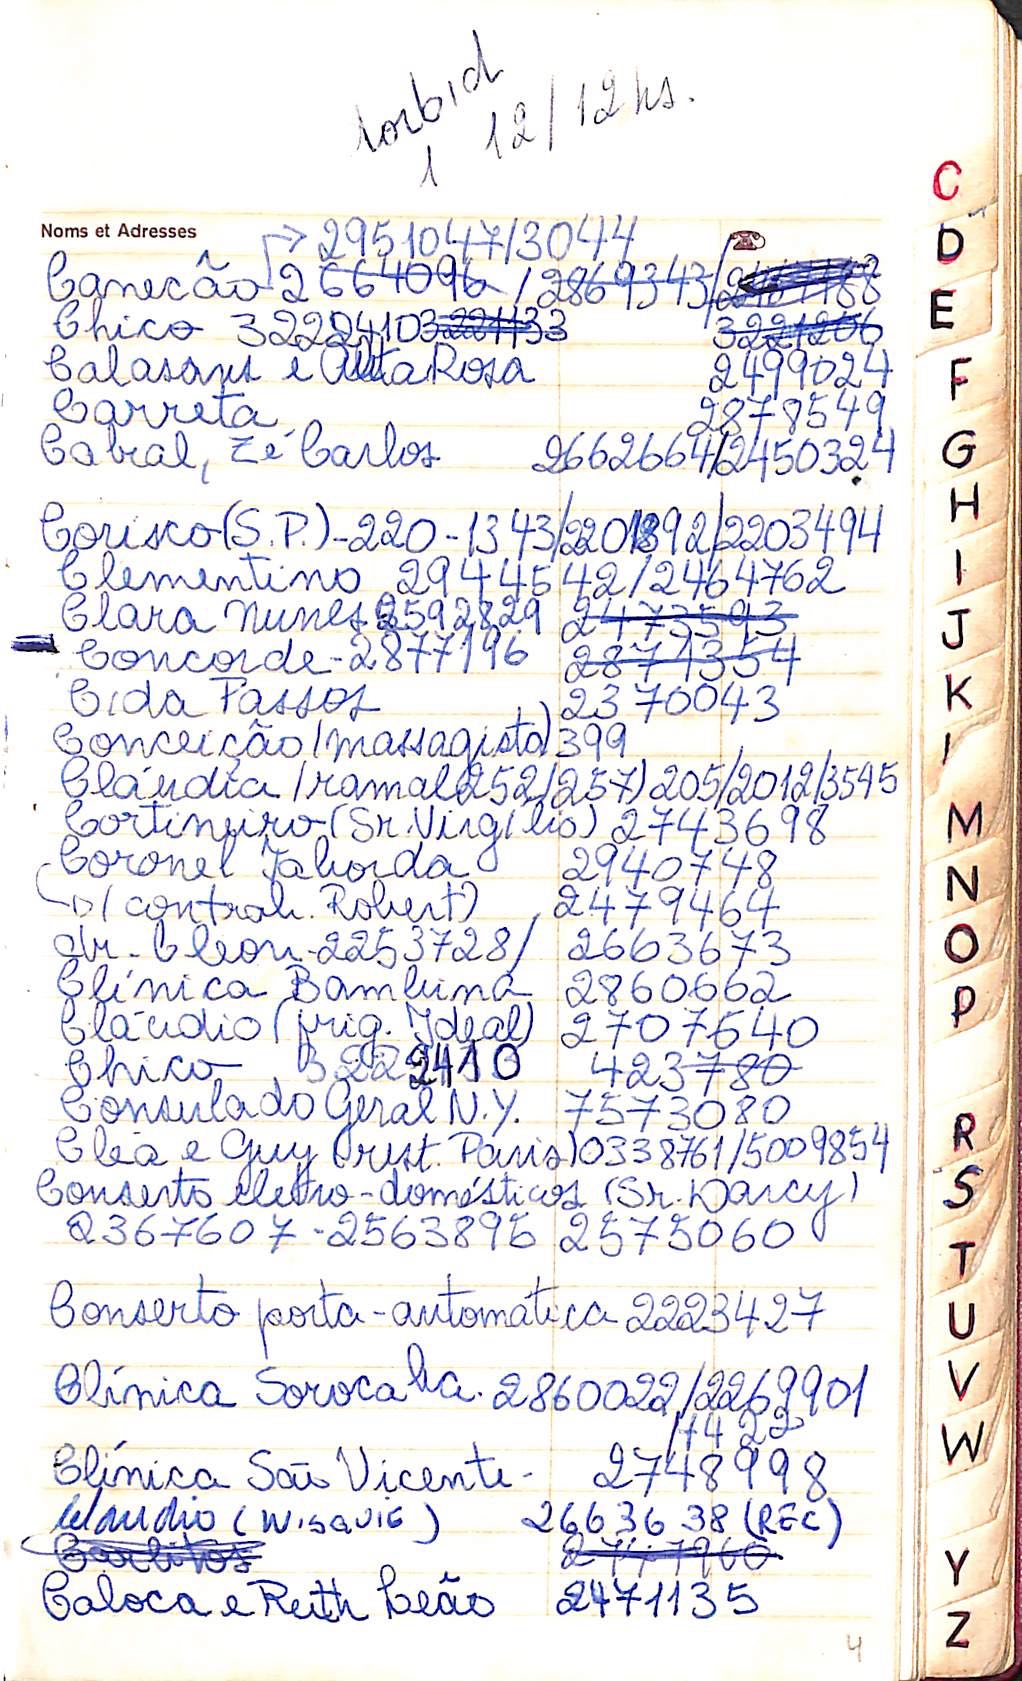 lorbid
1 12/12hs.
C
Noms et Adresses
→ 2951047/3044
Canecão 2664096 / 2869343/
Chico 32224103221133 3221206
Calasans e Rosa 2499024
Carreta 2878549
Cabral, Zé Carlos 2662664/2450324
Corisco (S.P.) - 220-1343/2201892/2203494
Clementino 2944542/2464762
Clara Nunes 2592829 2473593
Concorde - 2877196 2871354
Cida Passos 2370043
Conceição (massagista) 399
Cláudia (ramal 252/257) 205/2012/3545
Cortineiro (Sr. Virgílio) 2743698
Coronel Taborda 2940748
p/ contrab. Robert) 2479464
dr. Cleon - 2253728/ 2663673
Clínica Bambina 2860662
Cláudio (frig. Ideal) 2707640
Chico 3222410 423780
Consulado Geral N.Y. 7573080
Cléa e Guy (rest. Paris) 0338761/5009854
Conserto eletro-domésticos (Sr. Darcy)
2367607 - 2563895 2575060
Conserto porta-automática 2223427
Clínica Sorocaba. 2860022/2269901
/4422
Clínica São Vicente - 2748998
Claudio (Wisavié) 2663638 (REC)
Carlitos 2747960
Caloca e Ruth Leão 2471135
4
D
E
F
G
H
I
J
K
M
N
O
P
R
S
T
U
V
W
Y
Z